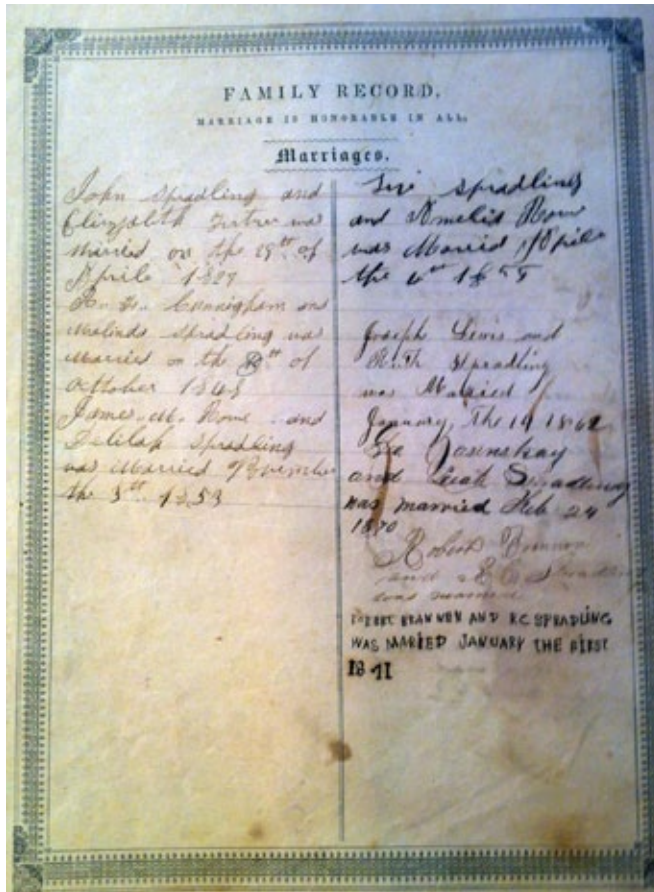 FAMILY RECORD.
MARRIAGE IS HONORABLE IN ALL.
Marriages.
John Spradling and
Elizabeth was
Married on the 29th of
Aprile 1829
Cunnigham and
Malinda Spradling was
Married on the th of
October 1848
James. M. Rowe and
Delilah Spradling
was Married November
the 3th 1853
Spradling
and Amelia Rowe
was Married Aprile
the 6th 1855
Joseph Lewis and
Ruth Spradling
was Married
January, The 19 1862
and Leah Spradling
was married Feb 24
1870
Robert Brannon
and R C Spradlin
was married
ROBERT BRANNEN AND R.C SPRADLING
WAS MARIED JANUARY THE FIRST
1871